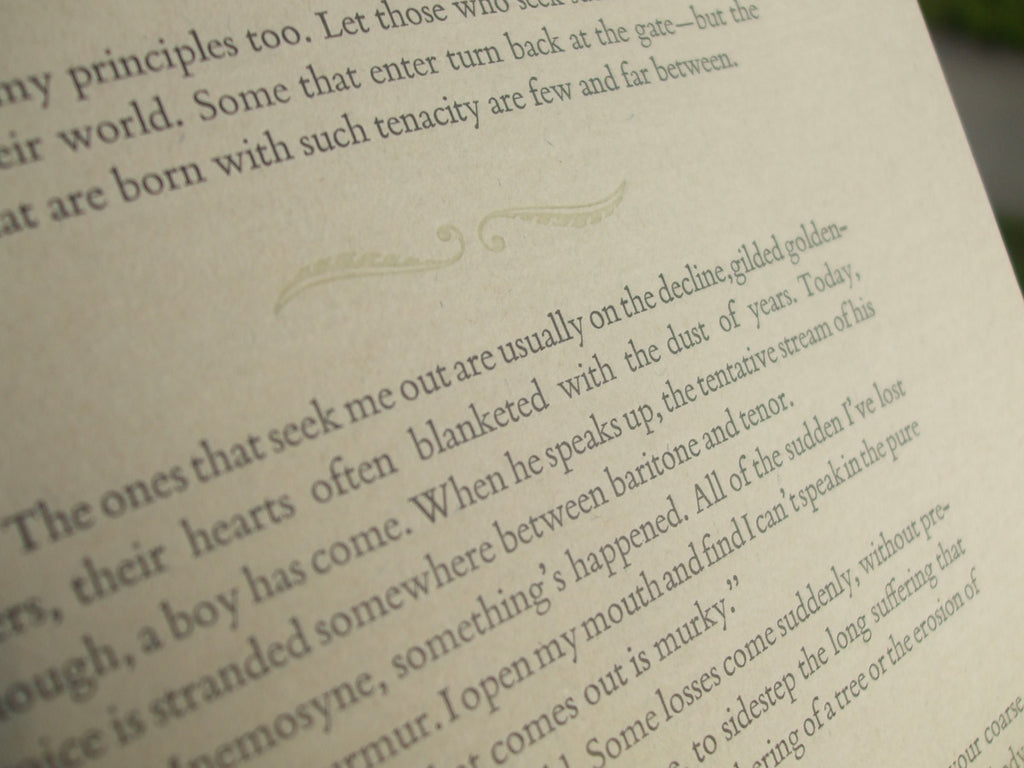 my principles too. Let those who seek
eir world. Some that enter turn back at the gate—but the
at are born with such tenacity are few and far between.
The ones that seek me out are usually on the decline, gilded golden-
ers, their hearts often blanketed with the dust of years. Today,
hough, a boy has come. When he speaks up, the tentative stream of his
oice is stranded somewhere between baritone and tenor.
nemosyne, something's happened. All of the sudden I've lost
urmur. I open my mouth and find I can't speak in the pure
t comes out is murky."
Some losses come suddenly, without pre-
to sidestep the long suffering that
ering of a tree or the erosion of
your coarse